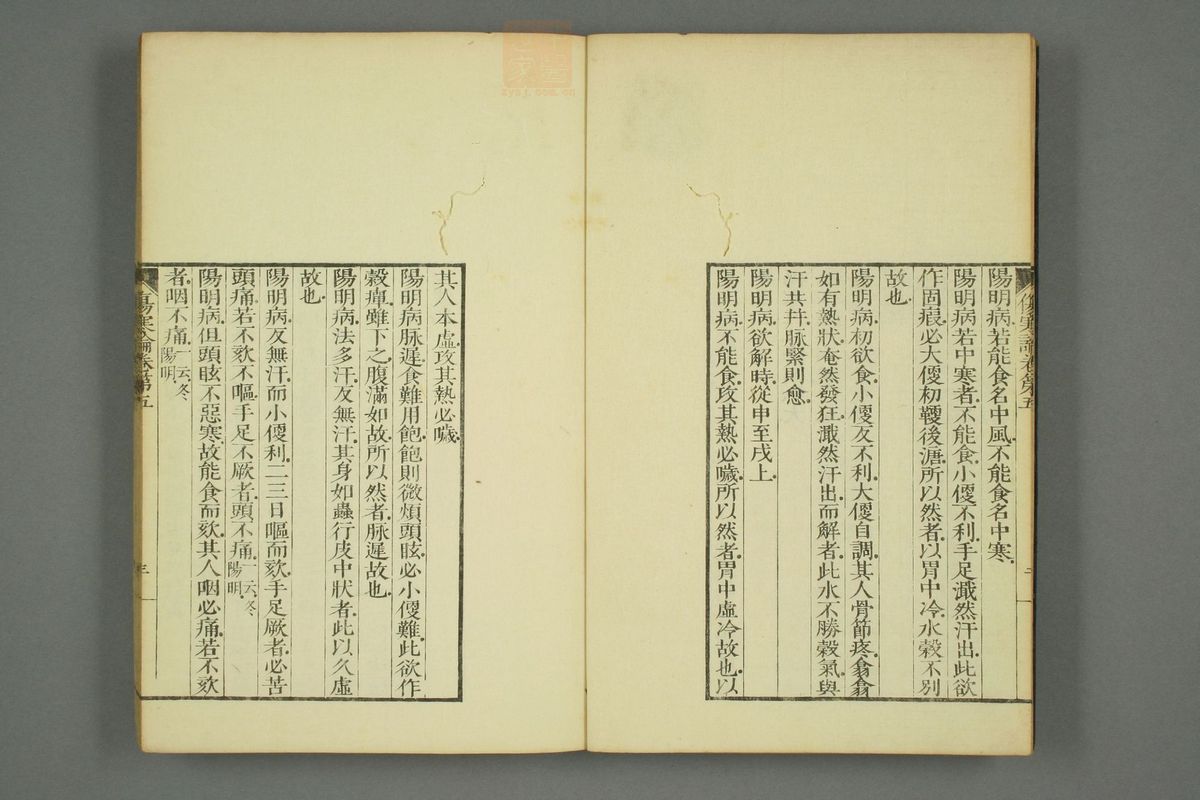 陽明病若能食名中風不能食名中寒
陽明病若中寒者不能食小便不利手足濈然汗出此欲
作固瘕必大便初鞕後溏所以然者以胃中冷水穀不別
故也
陽明病初欲食小便反不利大便自調其人骨節疼翕翕
如有熱狀奄然發狂濈然汗出而解者此水不勝穀氣與
汗共幷脉緊則愈
陽明病欲解時從申至戌上
陽明病不能食攻其熱必噦所以然者胃中虛冷故也以
其人本虛攻其熱必噦
陽明病脉遲食難用飽飽則微煩頭眩必小便難此欲作
穀疸雖下之腹滿如故所以然者脉遲故也
陽明病法多汗反無汗其身如蟲行皮中狀者此以久虛
故也
陽明病反無汗而小便利二三日嘔而欬手足厥者必苦
頭痛若不欬不嘔手足不厥者頭不痛一云冬陽明
陽明病但頭眩不惡寒故能食而欬其人咽必痛若不欬
者咽不痛一云冬陽明
傷寒論卷第五
三
傷寒論卷第五
zysj.com.cn